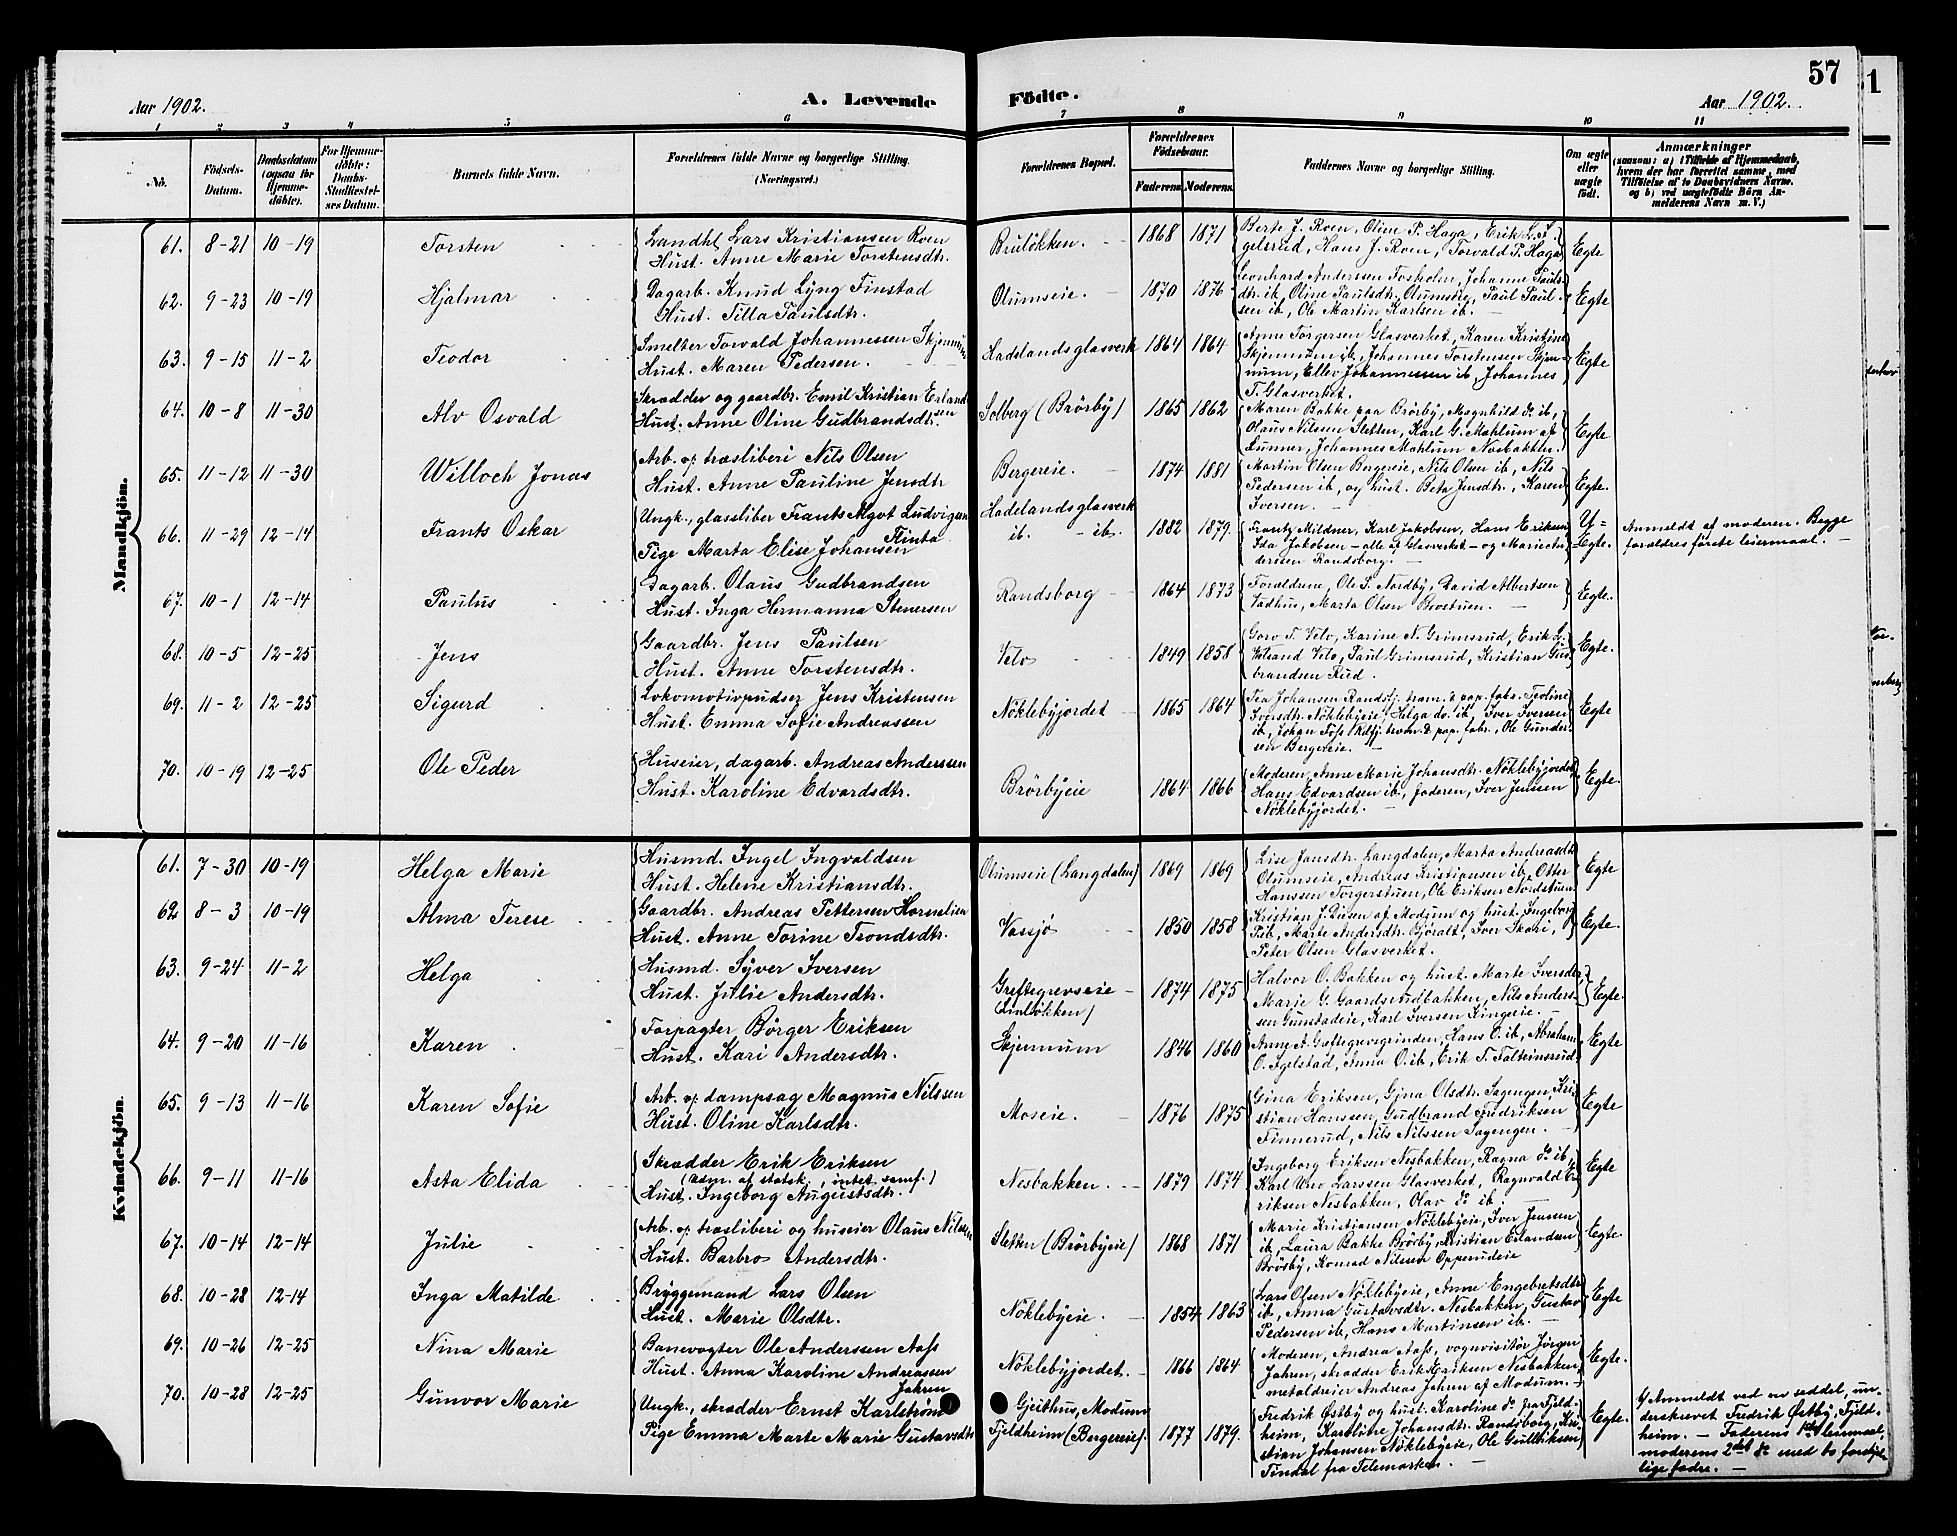 57
1
Aar 1902.
A. Levende
Födte.
Aar 1902.
1 2 3 4 5 6 7 8 9 10 11
No.
Födsels-
Datum.
Daabsdatum
(ogsaa for
Hjemme-
döbte).
For Hjemme-
döbte:
Daabs-
Stadfæstel-
ses Datum.
Barnets fulde Navn.
Forældrenes fulde Navne og borgerlige Stilling.
(Næringsvei.)
Forældrenes Bopæl.
Forældrenes
Födselsaar.
Faderens. Moderens.
Faddernes Navne og borgerlige Stilling.
Om ægte
eller
uægte
født.
Anmærkninger
(saasom: a) i Tilfælde af Hjemmedaab,
hvem der har forrettet samme, med
Tilföielse af to Daabsvidners Navne.
og b) ved uægtefödte Börn An-
melderens Navn m. V.)
Mandkjön.
61. 8-21 10-19 Torsten
Landh. Lars Kristiansen Roen
Hust. Anne Marie Torstensdtr.
Bruløkken. 1868 1871
Berte J. Roen, Oline P. Haga, Erik L. I-
gelsrud, Hans J. Roen, Torvald P. Haga
Egte
62. 9-23 10-19 Hjalmar
Dagarb. Knud Lyng Finstad
Hust. Tilla Paulsdtr.
Olumseie. 1870 1876
Leonhard Andersen Fosholm, Johanne Pauls-
dtr. ib, Oline Paulsdtr. Olumseie, Paul Paul-
sen ib, Ole Martin Karlsen ib.
Egte
63. 9-15 11-2 Teodor
Smelter Torvald Johannessen Skjennum
Hust. Maren Pedersen.
Hadelandsglasverk 1864 1864
Anne Torgersen Glasverket, Karen Kristine
Skjennum ib, Johannes Torstensen Skjen-
num, Ellev Johannessen ib, Johannes
T. Glasverket.
Egte
64. 10-8 11-30 Alv Osvald
Skrædder og gaardbr. Emil Kristian Erland-
sen
Hust. Anne Oline Gudbrandsdtr.
Solberg (Brörby) 1865 1862
Maren Bakke paa Brörby, Magnhild do ib,
Olaus Nilsen Sletten, Karl G. Mahlum af
Lunner, Johannes Mahlum Nesbakken.
Egte
65. 11-12 11-30 Willoch Jonas
Arb. v. træsliberi Nils Olsen
Hust. Anne Pauline Jensdtr
Bergereie. 1874 1881
Martin Olsen Bergereie, Nils Olsen ib, Nils
Pedersen ib, og hust. Beta Jensdtr., Karen
Iversen.
Egte.
66. 11-29 12-14 Frants Oskar
Ungk., glassliber Frants Ludvigsen
Flinta
Pige Marta Elise Johansen
Hadelandsglasverk
ib. - ib. 1882 1879.
Frantz Mildner, Karl Jakobsen, Hans Eriksen
Ida Jakobsen - alle af Glasverket - og Marie An-
derssen Randsborg.
U=
Egte.
Anmeldt af moderen. Begge
forældres første leiermaal.
67. 10-1 12-14 Paulus
Dagarb. Olaus Gudbrandsen
Hust. Inga Hermanna Stenersen
Randsborg 1864 1873
Forældrene, Ole S. Nordby, David Albertsen
Vadhus, Marta Olsen Brostuen.
Egte.
68. 10-5 12-25 Jens
Gaardbr. Jens Paulsen
Hust. Anne Torstensdtr.
Velo 1849 1858
Goro T. Velo, Karine N. Grimsrud, Erik L.
Velo, Paul Grimsrud, Kristian Gud-
brandsen Rud
Egte.
69. 11-2 12-25 Sigurd
Lokomotivpudser Jens Kristensen
Hust. Emma Sofie Andreassen
Nöklebyjordet 1865 1864
Tea Johansen Randsfj. træm. & pap. fabr. Teoline
Iversdtr. Nöklebyeie, Helga do. ib, Iver Iversen
ib, Johan Fose Rdsfj. træm. & pap. fabr., Ole Gunder-
sen Bergereie.
Egte
70. 10-19 12-25 Ole Peder
Huseier, dagarb. Andreas Anderssen
Hust. Karoline Edvardsdtr.
Brörbyeie 1864 1866
Moderen, Anne Marie Johansdtr. Nöklebyjordet,
Hans Edvardsen ib, faderen, Iver Jenssen
Nöklebyjordet.
Egte.
Kvindekjön.
61. 7-30 10-19 Helga Marie
Husmd. Ingel Ingvaldsen
Hust. Helene Kristiansdtr.
Olumseie (Langdalen) 1869 1869
Lise Jansdtr. Langdalen, Marta Andreasdtr.
Olumseie, Andreas Kristiansen ib, Otter
Hanssen Torgerstuen, Ole Eriksen Nordstuen
Egte
62 8-3 10-19 Alma Terese
Gaardbr. Andreas Pettersen Hornslien
Hust. Anne Torine Trondsdtr.
Vassjø 1850 1858
Kristian J. Disen af Modum og hust. Ingeborg
P. ib, Marte Andersdtr. Björalt, Iver Skari,
Peter Olsen Glasverket.
Egte.
63. 9-24 11-2 Helga
Husmd. Syver Iversen
Hust. Julie Andersdtr.
Greftegrevseie
Linløkken) 1874 1875
Halvor O. Bakken og hust. Marte Iversdtr,
Marie G. Gaardsrudbakken, Nils Anders-
sen Gunstadeie, Karl Iversen Kingeeie.
Egte.
64. 9-20 11-16 Karen
Forpagter Börger Eriksen
Hust. Kari Andersdtr.
Skjennum 1846 1860
Anne A. Greftegrevgrinden, Hans O. ib, Abraham
O. Igelstad, Anna O. ib, Erik T. Falkeinsrud
Egte
65. 9-13 11-16 Karen Sofie
Arb. v. dampsag Magnus Nilssen
Hust. Oline Karlsdtr.
Moseie. 1876 1875
Gina Eriksen, Gina Olsdtr. Sagengen, Kri-
stian Hanssen, Gudbrand Fredriksen
Finnerud, Nils Nilssen Sagengen.
Egte
66. 9-11 11-16 Asta Elida
Skrædder Erik Eriksen
(usm. af statsk., intet samf.)
Hust. Ingeborg Augustsdtr.
Nesbakken. 1879 1874
Ingeborg Eriksen Nesbakken, Ragna do ib,
Karl Uno Larssen Glasverket, Ragnvald E-
riksen Nesbakken, Olav do ib.
Egte
67. 10-14 12-14 Julie
Arb. v. træsliberi og huseier Olaus Nilssen
Hust. Barbro Andersdtr.
Sletten (Brörbyeie) 1868 1871
Marie Kristiansen Nöklebyeie, Iver Jensen
ib, Laura Bakke Brörby, Kristian Erlandsen
Brörby, Konrad Nilsen Opperudeie
Egte.
68. 10-28 12-14 Inga Matilde
Bryggemand Lars Olsen
Hust. Marie Olsdtr.
Nöklebyeie. 1854 1863
Lars Olsen Nöklebyeie, Anne Engebretsdtr
ib, Anna Gustavsdtr. Nesbakken, Gustav
Pedersen ib, Hans Martinsen ib.
Egte
69. 10-26 12-25 Nina Marie
Banevogter Ole Anderssen Aass
Hust. Anna Karoline Andreassen
Jahren
Nöklebyjordet. 1866 1864
Moderen, Andrea Aass, vognvisitör Jörgen
Jahren, skrædder Erik Eriksen Nesbakken
metaldreier Andreas Jahren af Modum.
Egte.
70. 10-28 12-25 Gunvor Marie
Ungk., skrædder Ernst Karlström
Pige Emma Marte Marie Gustavsdtr
Gjeithus, Modum
Fjeldheim (Bergereie). 1877 1879.
Fredrik Østby og hust. Karoline do paa Fjeld-
heim, Karoline Johansdtr. Randsborg, Kri-
stian Johansen Nöklebyeie, Ole Gulliksen
Tindal fra Telemarken.
Egte.
Anmeldt ved en seddel, un-
derskrevet Fredrik Østby, Fjeld-
heim. - Faderens 1ste leiermaal,
moderens 2det do med to forskjel-
lige fædre.